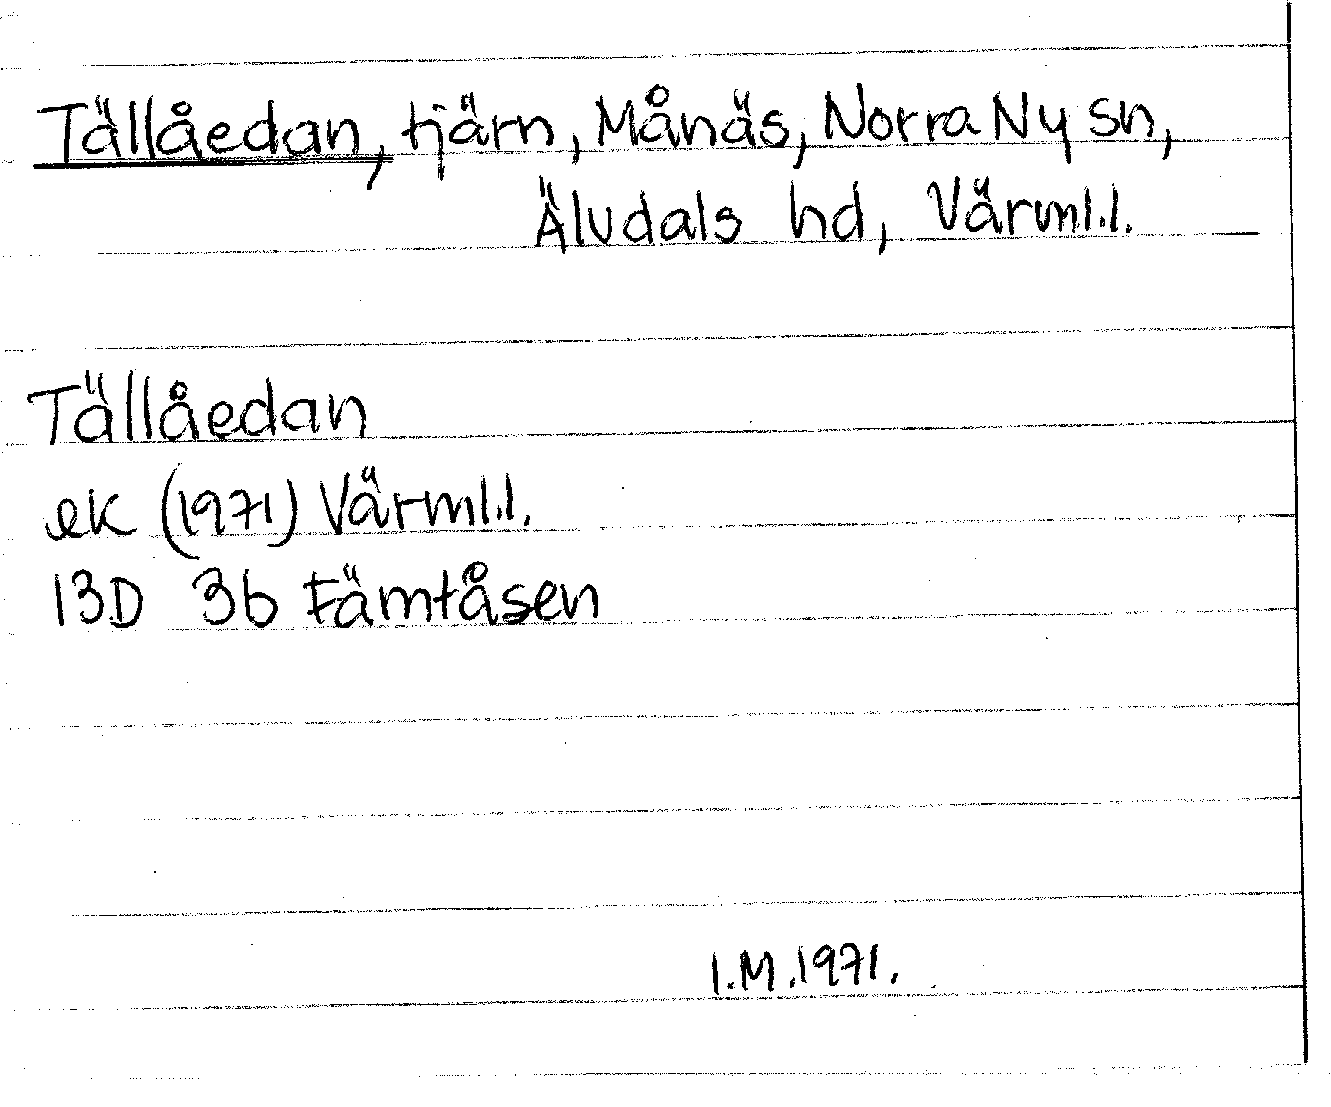 Tällåedan, tjärn, Månäs, Norra Ny sn,
Älvdals hd, Värml.l.
Tällåedan
ek (1971) Värml.l.
13D 3b Fämtåsen
I.M. 1971.